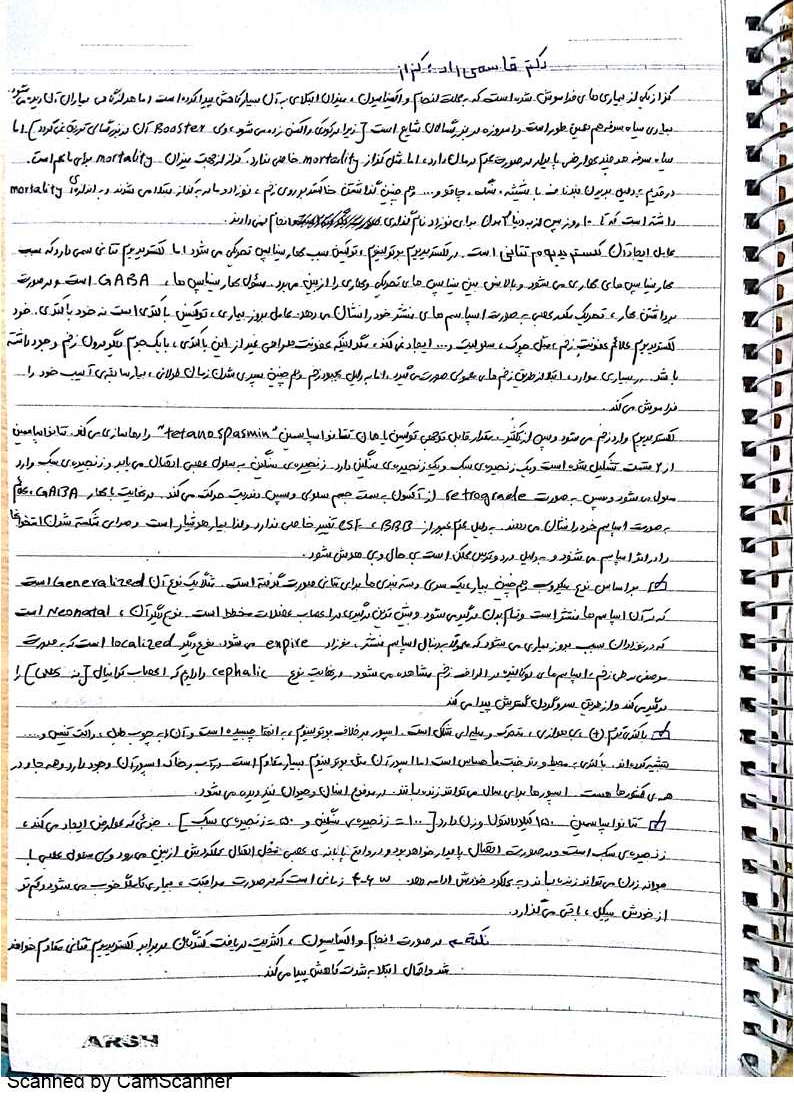 دکتر قاسمی راد ؛ کزاز
کزاز یکی از بیماری های فراموش شده است که به علت انجام واکسیناسیون ، میزان ابتلای به آن بسیار کاهش پیدا کرده است اما هر از گاهی بیماران آن دیده می شود
بیماری سیاه سرفه هم همین طور است و امروزه در بزرگسالان شایع است [زیرا در کودکی واکسن زده می شود ، ولی Booster آن در بزرگسالی تزریق نمی گردد]. اما
سیاه سرفه هر چند عوارضی پایدار در صورت عدم درمان دارد ، اما مثل کزاز mortality خاصی ندارد. کزاز از جهت میزان mortality برای ما مهم است.
در قدیم به دلیل بریدن بند ناف با شیشه ، سنگ ، چاقو و... و هم چنین گذاشتن خاکستر بر روی زخم ، نوزادها به کزاز مبتلا می شدند و به اندازه ی mortality
داشته است که تا ۱۰ روز پس از به دنیا آمدن برای نوزاد نام گذاری انجام نمی دادند.
عامل ایجاد آن کلستریدیوم تتانی است. در کلستریدیوم بوتولینوم ، توکسین سبب مهار سیناپس تحریکی می شود اما کلستریدیوم تتانی سمی دارد که سبب
مهار سیناپس های مهاری می شود و بالانس بین سیناپس های تحریکی و مهاری را از بین می برد. مسئول مهار سیناپس ها ، GABA است و در صورت
برداشتن مهار ، تحریک ممتد عصبی به صورت اسپاسم های منتشر خود را نشان می دهد. عامل بروز بیماری ، توکسین باکتری است نه خود باکتری. خود
کلستریدیوم علائم عفونت زخم ، مثل چرک ، سلولیت و... ایجاد نمی کند ، مگر اینکه عفونت همراهی غیر از این باکتری ، با یک جرم دیگر درون زخم وجود داشته
باشد. در بسیاری موارد ، ابتلا از طریق زخم های عمیق صورت می گیرد. اما به دلیل بهبود زخم و هم چنین سپری شدن زمان طولانی ، بیمار سابقه ی آسیب خود را
فراموش می کند.
کلستریدیوم وارد زخم می شود و پس از تکثیر ، مقدار قابل توجهی توکسین یا همان تتانواسپاسمین "tetanospasmin" را رها سازی می کند. تتانواسپاسمین
از ۲ قسمت تشکیل شده است و یک زنجیره ی سبک و یک زنجیره ی سنگین دارد. زنجیره ی سنگین به سلول عصبی اتصال می یابد و زنجیره ی سبک وارد
سلول می شود و سپس به صورت retrograde از آکسون به سمت جسم سلولی و سپس دندریت حرکت می کند. در نهایت با مهار GABA ، علائم
به صورت اسپاسم خود را نشان می دهند. به دلیل عدم عبور از BBB ، CSF تغییر خاصی ندارد و لذا بیمار هوشیار است و صدای شکسته شدن استخوان ها
را در اثر اسپاسم می شنود و به دلیل درد و ترس ممکن است بی حال و بی هوش شود.
بر اساس نوع میکروب و هم چنین بیمار ، یک سری دسته بندی ها برای تتانی صورت گرفته است. مثلا یک نوع آن Generalized است
که در آن اسپاسم ها منتشر است و تمام بدن درگیر می شود و بیش ترین درگیری در اعصاب عضلات مخطط است. نوع دیگر آن ، Neonatal است
که در نوزادان سبب بروز بیماری می شود که معمولا به دنبال اسپاسم منتشر ، نوزاد expire می شود. نوع دیگر localized است که به صورت
موضعی در طی زخم ، اسپاسم های لوکالیزه در اطراف زخم مشاهده می شود. در نهایت نوع cephalic را داریم که اعصاب کرانیال را
درگیر می کند و از طریق سر و گردن گسترش پیدا می کند
باکتری گرم (+) ، بی هوازی ، متحرک و میله ای شکل است. اسپور بر خلاف بوتولینوم ، به انتها چسبیده است و آن را به چوب طبل ، راکت تنیس و....
تشبیه کرده اند. باکتری به محیط و رفت ها حساس است اما اسپور آن مثل بوتولینوم بسیار مقاوم است. در آب و خاک اسپور آن وجود دارد و همه جا و در
همه ی کشورها هست. اسپورها برای سال می توانند زنده بمانند. در مدفوع انسان و حیوان نیز دیده می شود.
تتانواسپاسمین ۱۵۰ کیلودالتون وزن دارد [۱۰۰ = زنجیره ی سنگین و ۵۰ = زنجیره ی سبک]. جزئی که عوارض ایجاد می کند ،
زنجیره ی سبک است و در صورت اتصال پایدار خواهد بود و در واقع پایانه ی عصبی محل اتصال عملکردش از بین می رود ولی سلول عصبی با
جوانه زدن می تواند زنده بماند و به عملکرد خودش ادامه دهد. ۴-۶ w زمانی است که در صورت مراقبت ، بیماری کاملاً خوب می شود و کم تر
از خودش سیکل ، باقی می گذارد.
نکته ← در صورت انجام واکسیناسیون ، اکثریت دریافت کنندگان در برابر کلستریدیوم تتانی مقاوم خواهند
شد و احتمال ابتلا به شدت کاهش پیدا می کند.
ARSH
Scanned by CamScanner